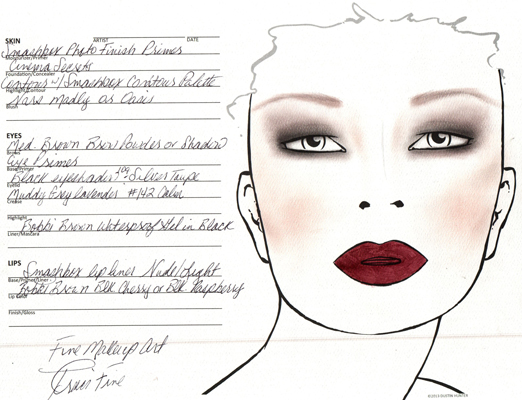 ARTIST DATE
SKIN
Smashbox Photo Finish Primer
Moisturizer/Primer
Cinema Secrets
Foundation/Concealer
Contour w/ Smashbox Contour Palette
Highlight/Contour
Nars Madly or Oasis
Blush
EYES
Med. Brown Brow Powder or Shadow
Brows
Eye Primer
Base/Primer
Black eyeshadow Silver Taupe
Eyelid
Muddy Grey lavender #142 Calm
Crease
Highlight
Bobbi Brown Waterproof Gel in Black
Liner/Mascara
LIPS
Smashbox lipliner Nude/Light
Base/Primer/Liner
Bobbi Brown Blk Cherry or Blk Raspberry
Lip Color
Finish/Gloss
Fine Makeup Art
Fine